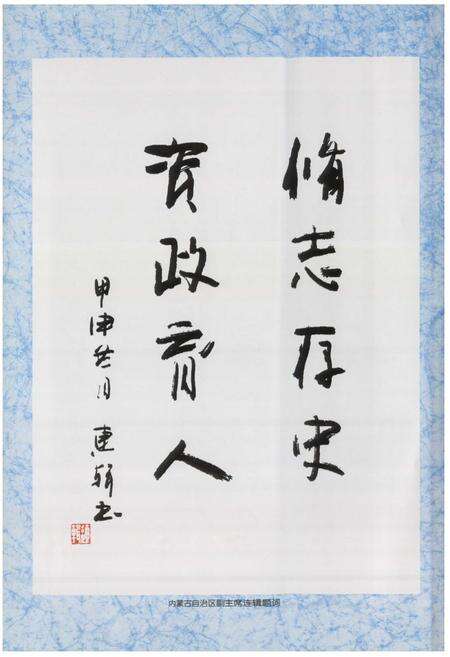 修志存史
资政育人
甲申冬月 连辑书
内蒙古自治区副主席连辑题词